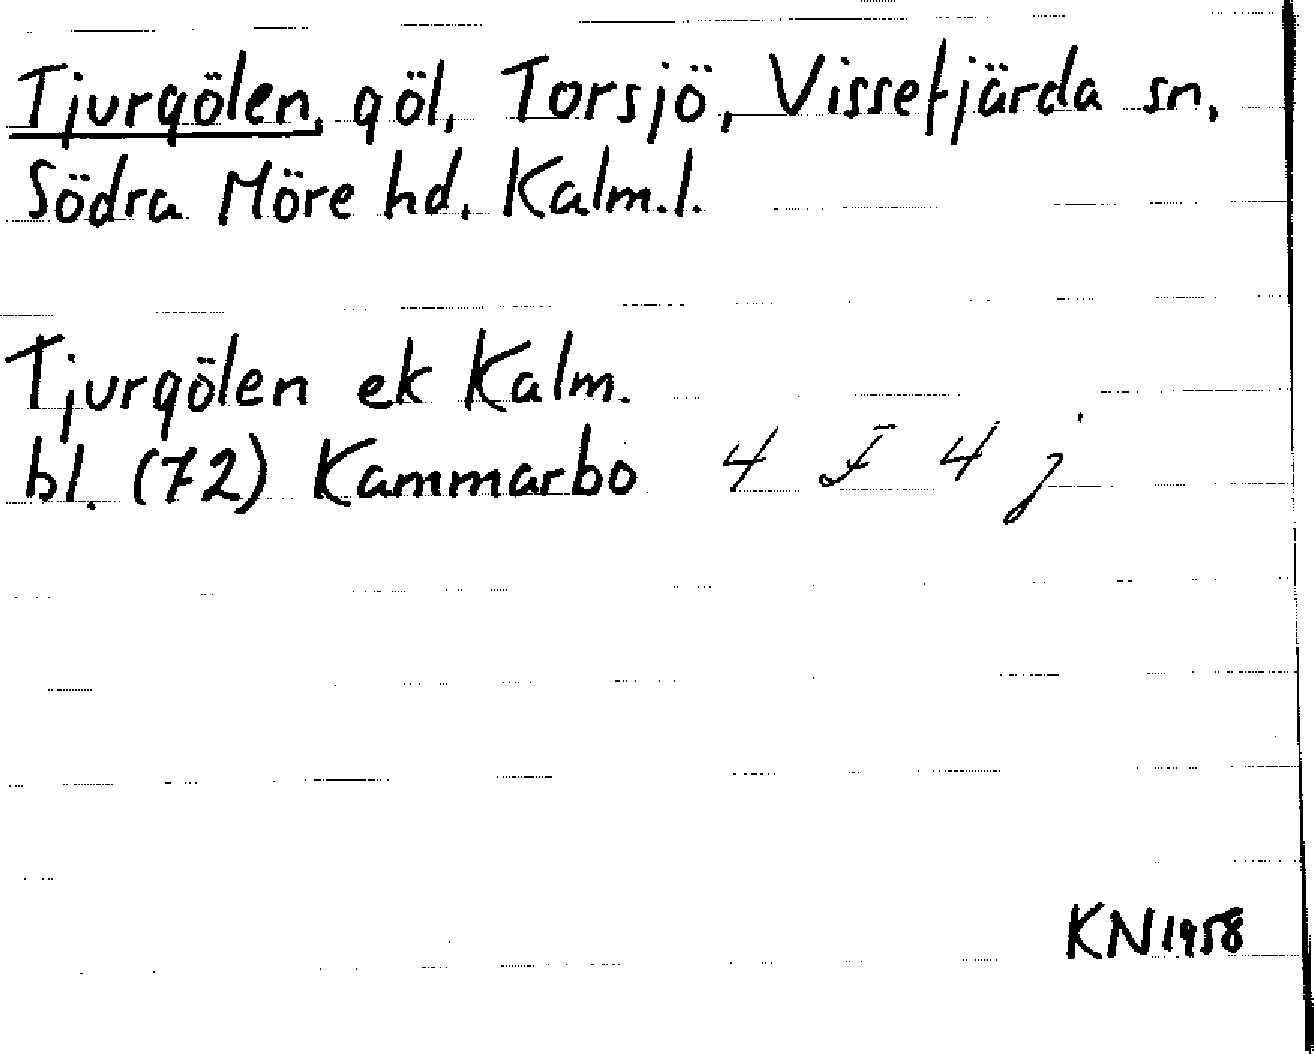 Tjurgölen, göl, Torsjö, Vissefjärda sn,
Södra Möre hd. Kalm.l.
Tjurgölen ek Kalm.
bl. (72) Kammarbo 4 F 4 j
KN 1958